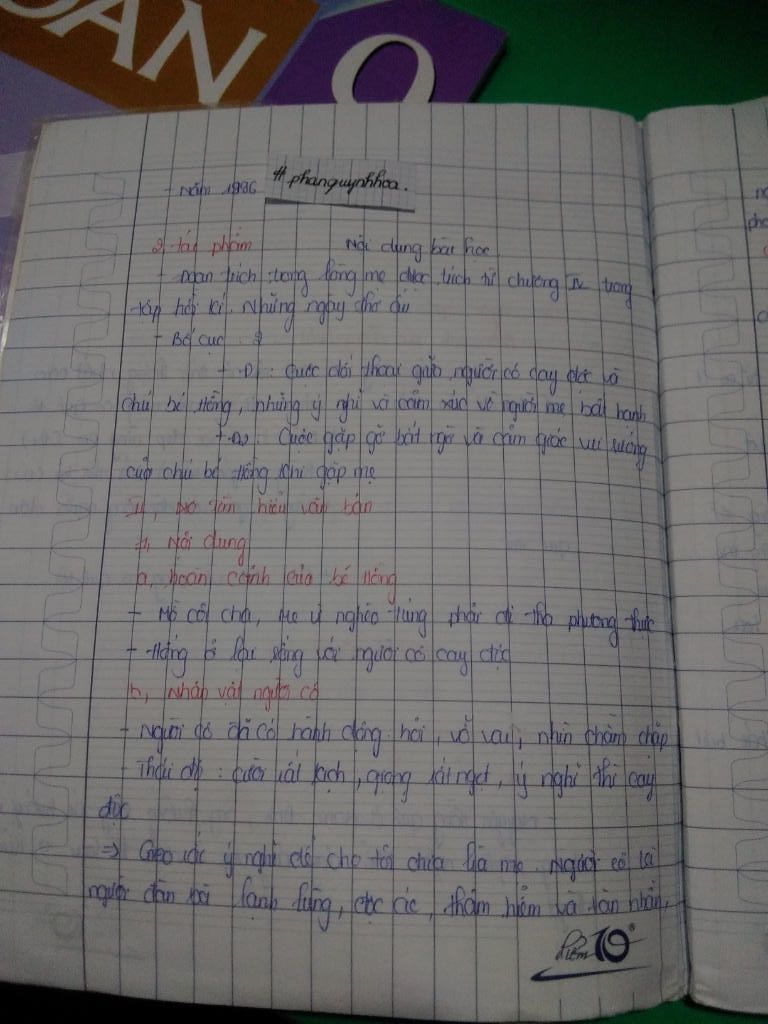 OAN
O
- Năm 1936 #phanquynhhoa.
2, tác phẩm Nội dung bài học
- Đoạn trích : trong lòng mẹ được trích từ chương IV trong
tập hồi kí. Những ngày thơ ấu
- Bố cục : 2
+ Đ1 : Cuộc đối thoại giữa người cô cay độc và
chú bé Hồng, những ý nghĩ và cảm xúc về người mẹ bất hạnh
+ Đ2 : Cuộc gặp gỡ bất ngờ và cảm giác vui sướng
của chú bé Hồng khi gặp mẹ
II, tìm hiểu văn bản
1, Nội dung
a, hoàn cảnh của bé Hồng
- Mồ côi cha, mẹ vì nghèo túng phải đi tha phương thực
- Hồng ở lại sống với người cô cay độc
b, Nhân vật người cô
- Người cô đã có hành động : hỏi, vỗ vai, nhìn chằm chặp
- Thái độ : cười rất kịch, giọng rất ngọt, ý nghĩ thì cay
độc
=> Gieo rắc ý nghĩ để cho tôi chia lìa mẹ. Người cô là
người đàn bà lạnh lùng, độc ác, thâm hiểm và tàn nhẫn.
Điểm 10